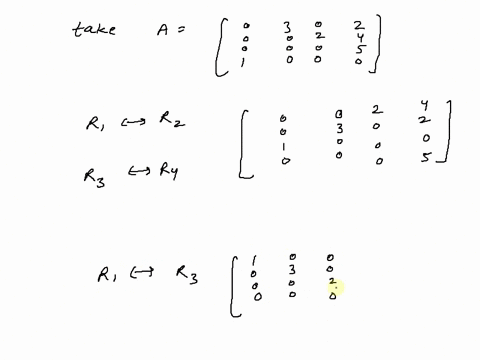 take A =
0 3 0 2
0 0 2 4
0 0 0 5
1 0 0 0
R1 ↔ R2
R3 ↔ R4
0 0 2 4
0 3 0 2
1 0 0 0
0 0 0 5
R1 ↔ R3
1 0 0
0 3 0
0 0 2
0 0 0